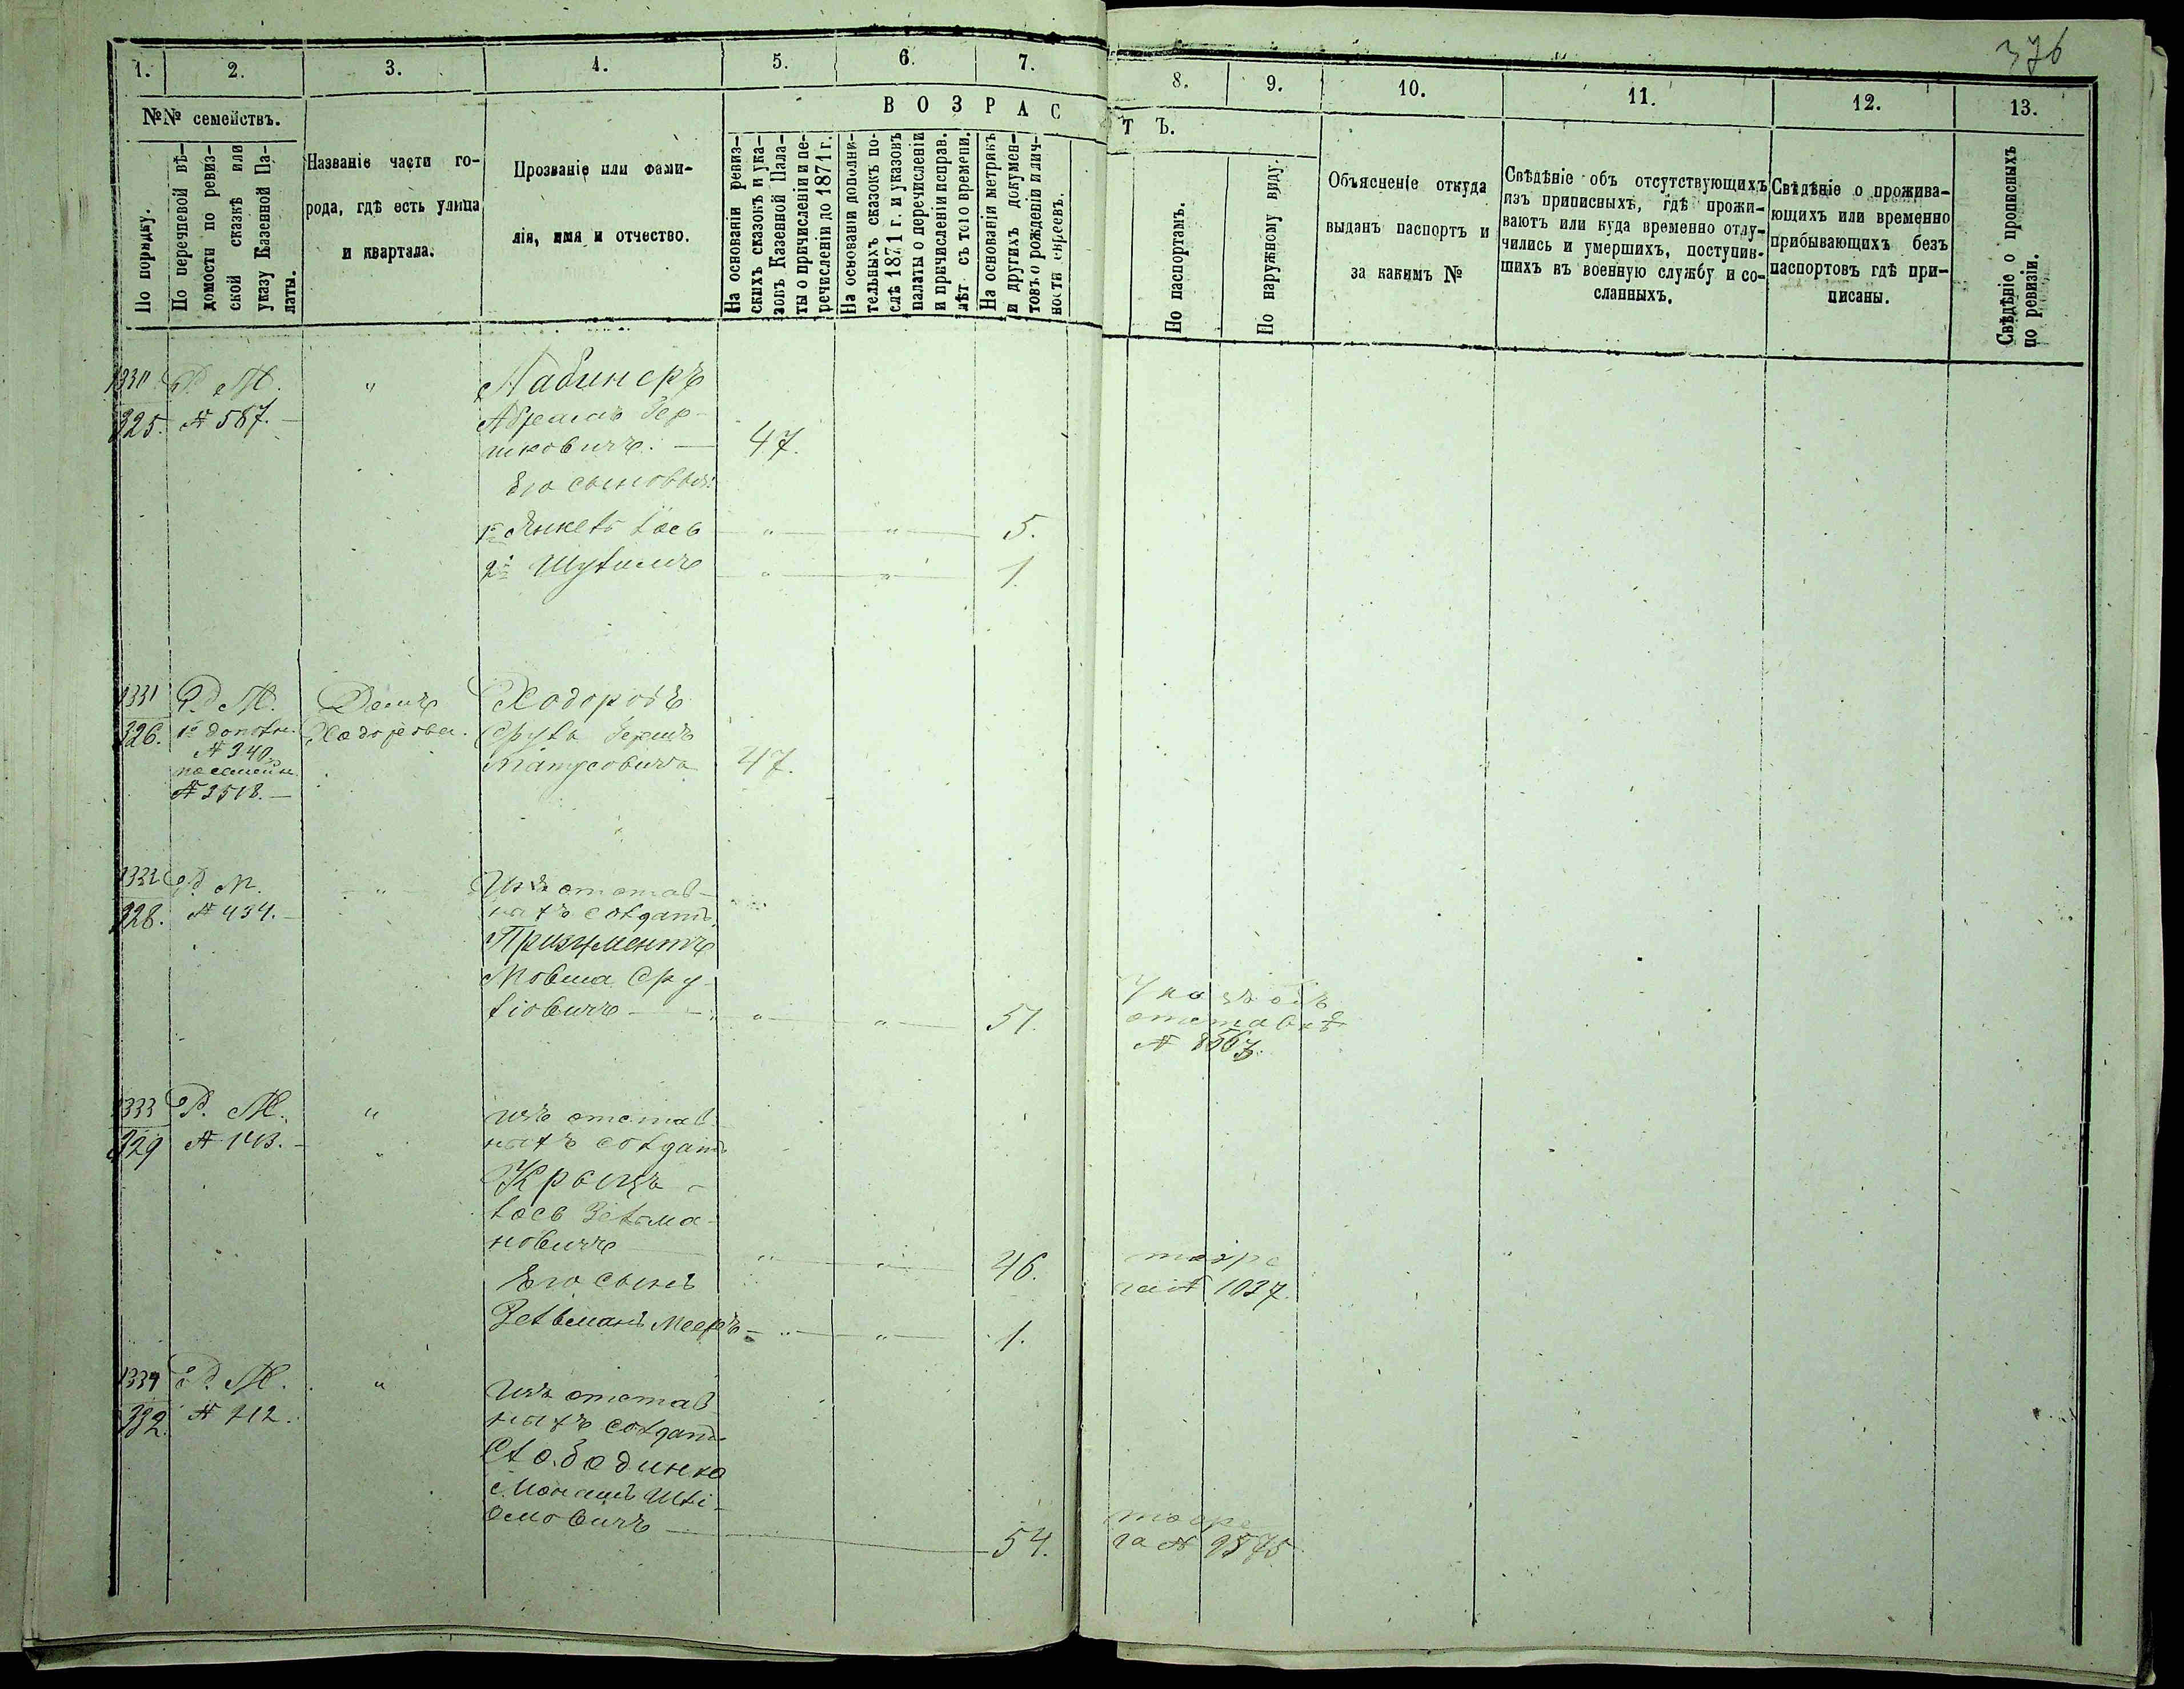 376
1. 2. 3. 4. 5. 6. 7. 8. 9. 10. 11. 12. 13.
№№ семействъ.
По порядку.
По перечневой вѣ-
домости по ревиз-
ской сказкѣ или
указу Казенной Па-
латы.
Названіе части го-
рода, гдѣ есть улица
и квартала.
Прозваніе или фами-
лія, имя и отчество.
ВОЗРАСТЪ.
На основаніи ревиз-
скихъ сказокъ и ука-
зовъ Казенной Пала-
ты о причисленіи и пе-
речисленіи до 1871 г.
На основаніи дополни-
тельныхъ сказокъ по-
слѣ 1871 г. и указовъ
палаты о перечисленіи
и причисленіи исправ.
лѣт. съ того времени.
На основаніи метрикъ
и другихъ докумен-
товъ о рожденіи и лич-
ности евреевъ.
По паспортамъ.
По наружному виду.
Объясненіе откуда
выданъ паспортъ и
за какимъ №
Свѣдѣніе объ отсутствующихъ
изъ приписныхъ, гдѣ прожи-
ваютъ или куда временно отлу-
чились и умершихъ, поступив-
шихъ въ военную службу и со-
сланныхъ.
Свѣдѣніе о прожива-
ющихъ или временно
прибывающихъ безъ
паспортовъ гдѣ при-
писаны.
Свѣдѣніе о прописныхъ
по ревизіи.
1330 Р. М. " Лабинеръ
325. № 587. Абрамъ Гер-
шковичъ. 47.
Его сыновья:
1й Янкель Іось " " 5.
2й Шулимъ " " 1.
1331 Р. М. Домъ Ходоровъ
326. 1е дополн. Ходорова. Сруль Гершъ
№ 340, Матусовичъ 47.
посемейн.
№ 3518.
1332 Р. М. " Изъ отстав-
328. № 434. ныхъ солдатъ
Призументъ
Мовша Сру-
ліовичъ " " 51. Указъ объ
отставкѣ
№
1333 Р. М. " Изъ отстав-
329 № 143. " ныхъ солдатъ
Крыцъ
Іось Зельма-
новичъ " " 46.
Его сынъ № 1037.
Зельманъ Мееръ " " 1.
1334 Р. М. " Изъ отстав-
332. № 212. ныхъ солдатъ
Слободинко
Монашъ Шлі-
омовичъ 54.
№ 9575